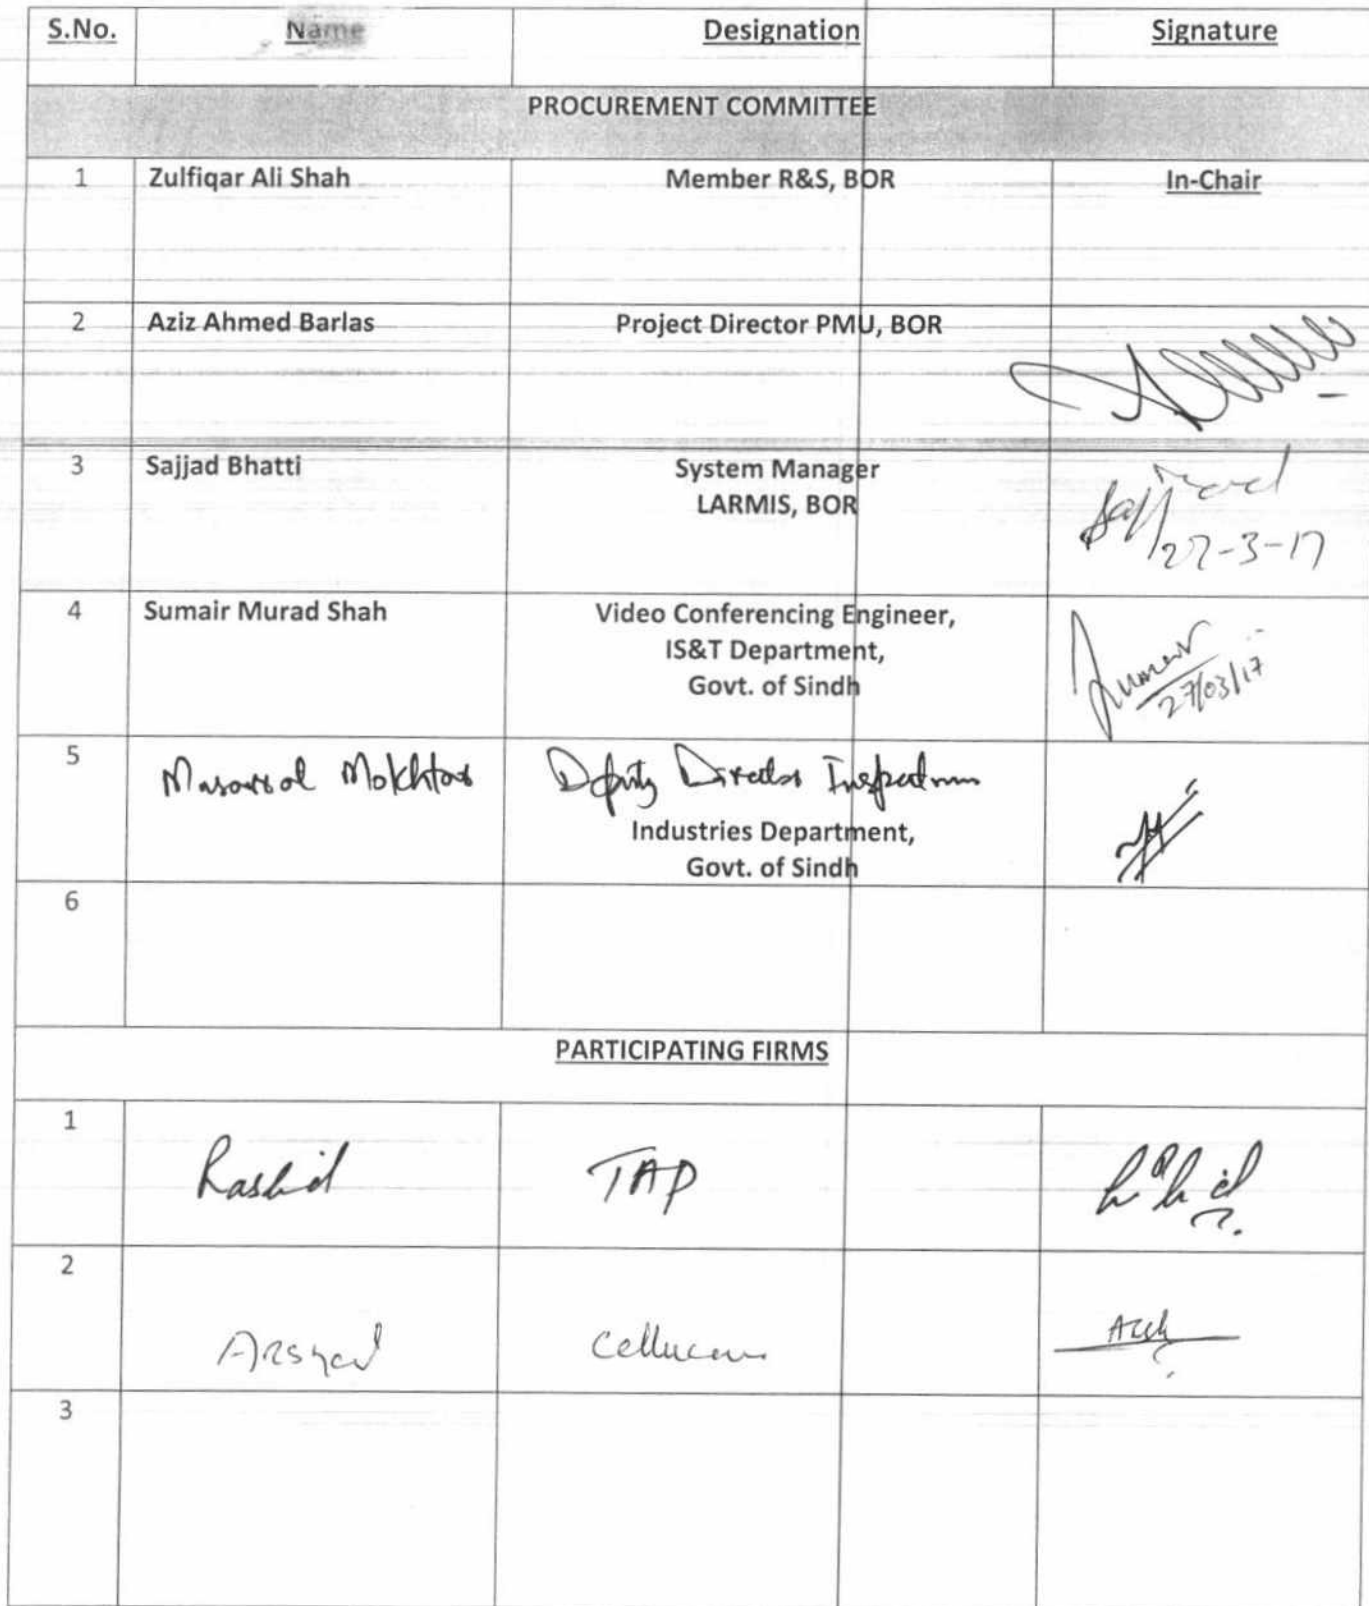 S.No. Name Designation Signature
PROCUREMENT COMMITTEE
1 Zulfiqar Ali Shah Member R&S, BOR In-Chair
2 Aziz Ahmed Barlas Project Director PMU, BOR
3 Sajjad Bhatti System Manager
LARMIS, BOR
Sajjad
27-3-17
4 Sumair Murad Shah Video Conferencing Engineer,
IS&T Department,
Govt. of Sindh
Sumair
27/03/17
5 Mokhtar Deputy Director
Industries Department,
Govt. of Sindh
6
PARTICIPATING FIRMS
1 Rashid TAP
2 Arshad
3